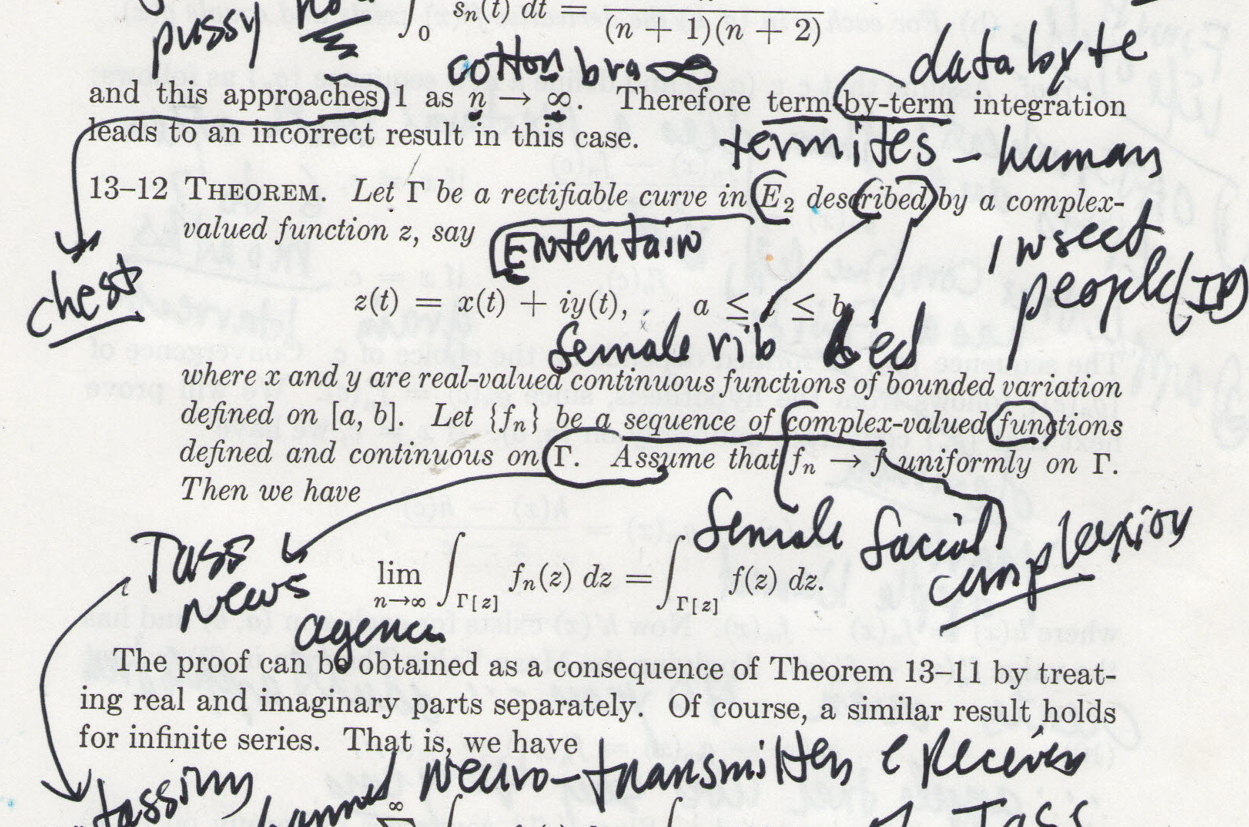 pussy
∫₀ sₙ(t) dt = (n + 1)(n + 2)
cotton bra ∞
data byte
and this approaches 1 as n → ∞. Therefore term-by-term integration
leads to an incorrect result in this case.
termites – human
13–12 THEOREM. Let Γ be a rectifiable curve in E₂ described by a complex-
valued function z, say
Entertain
insect
people (IP)
chest
z(t) = x(t) + iy(t), a ≤ t ≤ b,
female rib bed
where x and y are real-valued continuous functions of bounded variation
defined on [a, b]. Let {fₙ} be a sequence of complex-valued functions
defined and continuous on Γ. Assume that fₙ → f uniformly on Γ.
Then we have
female facial
complexion
Tass
news
agency
lim n→∞ ∫Γ[z] fₙ(z) dz = ∫Γ[z] f(z) dz.
The proof can be obtained as a consequence of Theorem 13–11 by treat-
ing real and imaginary parts separately. Of course, a similar result holds
for infinite series. That is, we have
neuro-transmitter & receiver
tassing
Tass